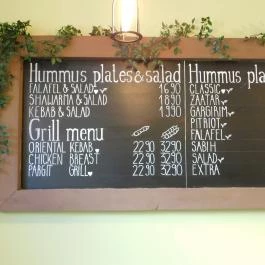 Hummus plates & salad
FALAFEL & SALAD 16.90
SHAWARMA & SALAD 18.90
KEBAB & SALAD 13.90
Grill menu
ORIENTAL KEBAB 22.90 32.90
CHICKEN BREAST 22.90 32.90
PARGIT GRILL 22.90 32.90
Hummus pla
CLASSIC
ZAATAR
GARGIRIM
PITRIOT
FALAFEL
SABIH
SALAD
EXTRA